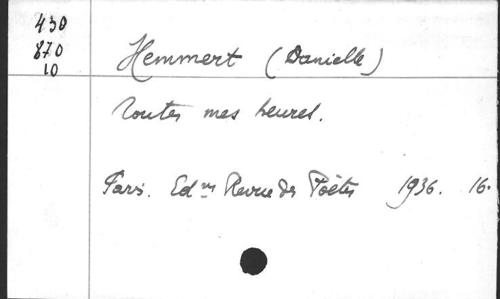 430
870
10
Hemmert (Danielle)
Toutes mes heures.
Paris. Edns Revue des Poètes 1936. 16.